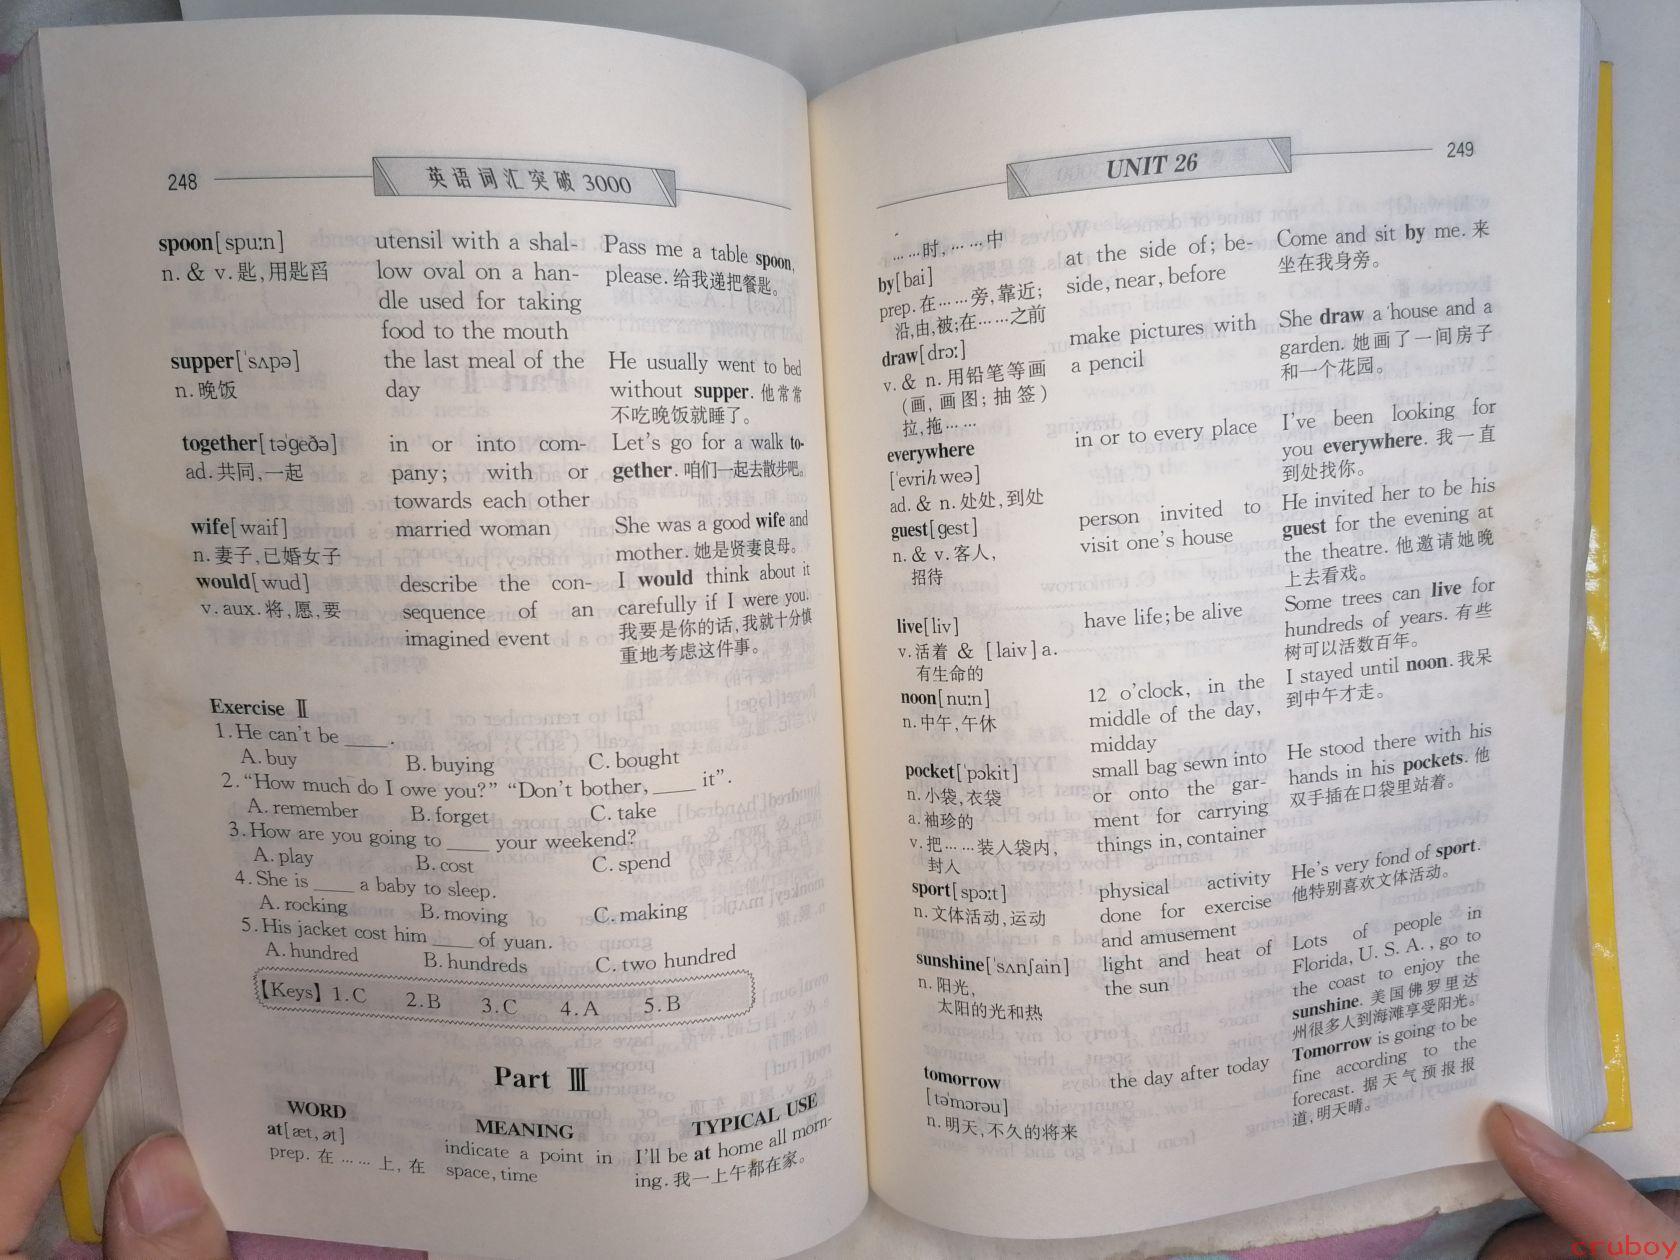 248
英语词汇突破 3000
spoon[spuːn]
n. & v. 匙,用匙舀
utensil with a shal-
low oval on a han-
dle used for taking
food to the mouth
Pass me a table spoon,
please. 给我递把餐匙。
supper[ˈsʌpə]
n. 晚饭
the last meal of the
day
He usually went to bed
without supper. 他常常
不吃晚饭就睡了。
together[təˈgeðə]
ad. 共同,一起
in or into com-
pany; with or
towards each other
Let's go for a walk to-
gether. 咱们一起去散步吧。
wife[waif]
n. 妻子,已婚女子
married woman
She was a good wife and
mother. 她是贤妻良母。
would[wud]
v. aux. 将,愿,要
describe the con-
sequence of an
imagined event
I would think about it
carefully if I were you.
我要是你的话,我就十分慎
重地考虑这件事。
Exercise Ⅱ
1. He can't be ____ .
A. buy B. buying C. bought
2. "How much do I owe you?" "Don't bother, ____ it".
A. remember B. forget C. take
3. How are you going to ____ your weekend?
A. play B. cost C. spend
4. She is ____ a baby to sleep.
A. rocking B. moving C. making
5. His jacket cost him ____ of yuan.
A. hundred B. hundreds C. two hundred
【Keys】 1. C 2. B 3. C 4. A 5. B
Part Ⅲ
WORD MEANING TYPICAL USE
at[æt, ət]
prep. 在……上,在
indicate a point in
space, time
I'll be at home all morn-
ing. 我一上午都在家。
UNIT 26
249
……时,……中
by[bai]
prep. 在……旁,靠近;
沿,由,被;在……之前
at the side of; be-
side, near, before
Come and sit by me. 来
坐在我身旁。
draw[drɔː]
v. & n. 用铅笔等画
(画,画图;抽签)
拉,拖……
make pictures with
a pencil
She draw a house and a
garden. 她画了一间房子
和一个花园。
everywhere
[ˈevrihweə]
ad. & n. 处处,到处
in or to every place
I've been looking for
you everywhere. 我一直
到处找你。
guest[gest]
n. & v. 客人,
招待
person invited to
visit one's house
He invited her to be his
guest for the evening at
the theatre. 他邀请她晚
上去看戏。
live[liv]
v. 活着 & [laiv] a.
有生命的
have life; be alive
Some trees can live for
hundreds of years. 有些
树可以活数百年。
noon[nuːn]
n. 中午,午休
12 o'clock, in the
middle of the day,
midday
I stayed until noon. 我呆
到中午才走。
pocket[ˈpɔkit]
n. 小袋,衣袋
a. 袖珍的
v. 把……装入袋内,
封入
small bag sewn into
or onto the gar-
ment for carrying
things in, container
He stood there with his
hands in his pockets. 他
双手插在口袋里站着。
sport[spɔːt]
n. 文体活动,运动
physical activity
done for exercise
and amusement
He's very fond of sport.
他特别喜欢文体活动。
sunshine[ˈsʌnʃain]
n. 阳光,
太阳的光和热
light and heat of
the sun
Lots of people in
Florida, U. S. A. , go to
the coast to enjoy the
sunshine. 美国佛罗里达
州很多人到海滩享受阳光。
tomorrow
[təˈmɔrəu]
n. 明天,不久的将来
the day after today
Tomorrow is going to be
fine according to the
forecast. 据天气预报报
道,明天晴。
cruboy